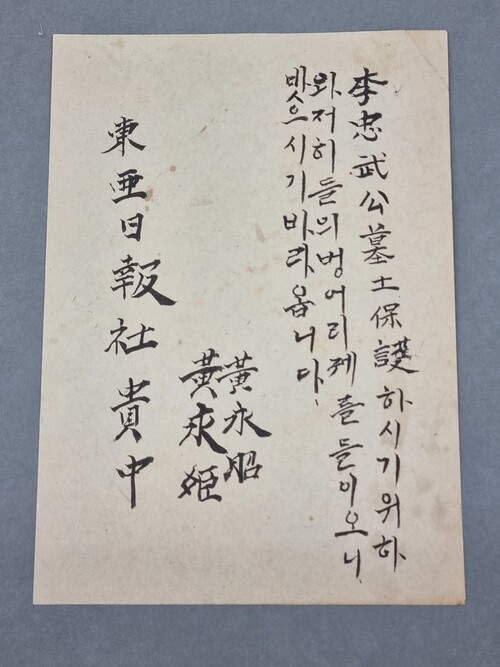 李忠武公墓土保護하시기위하
와저히들의벙어리제를들이오니
밧으시기바라옵니다
黃永昭
黃永姬
東亜日報社貴中